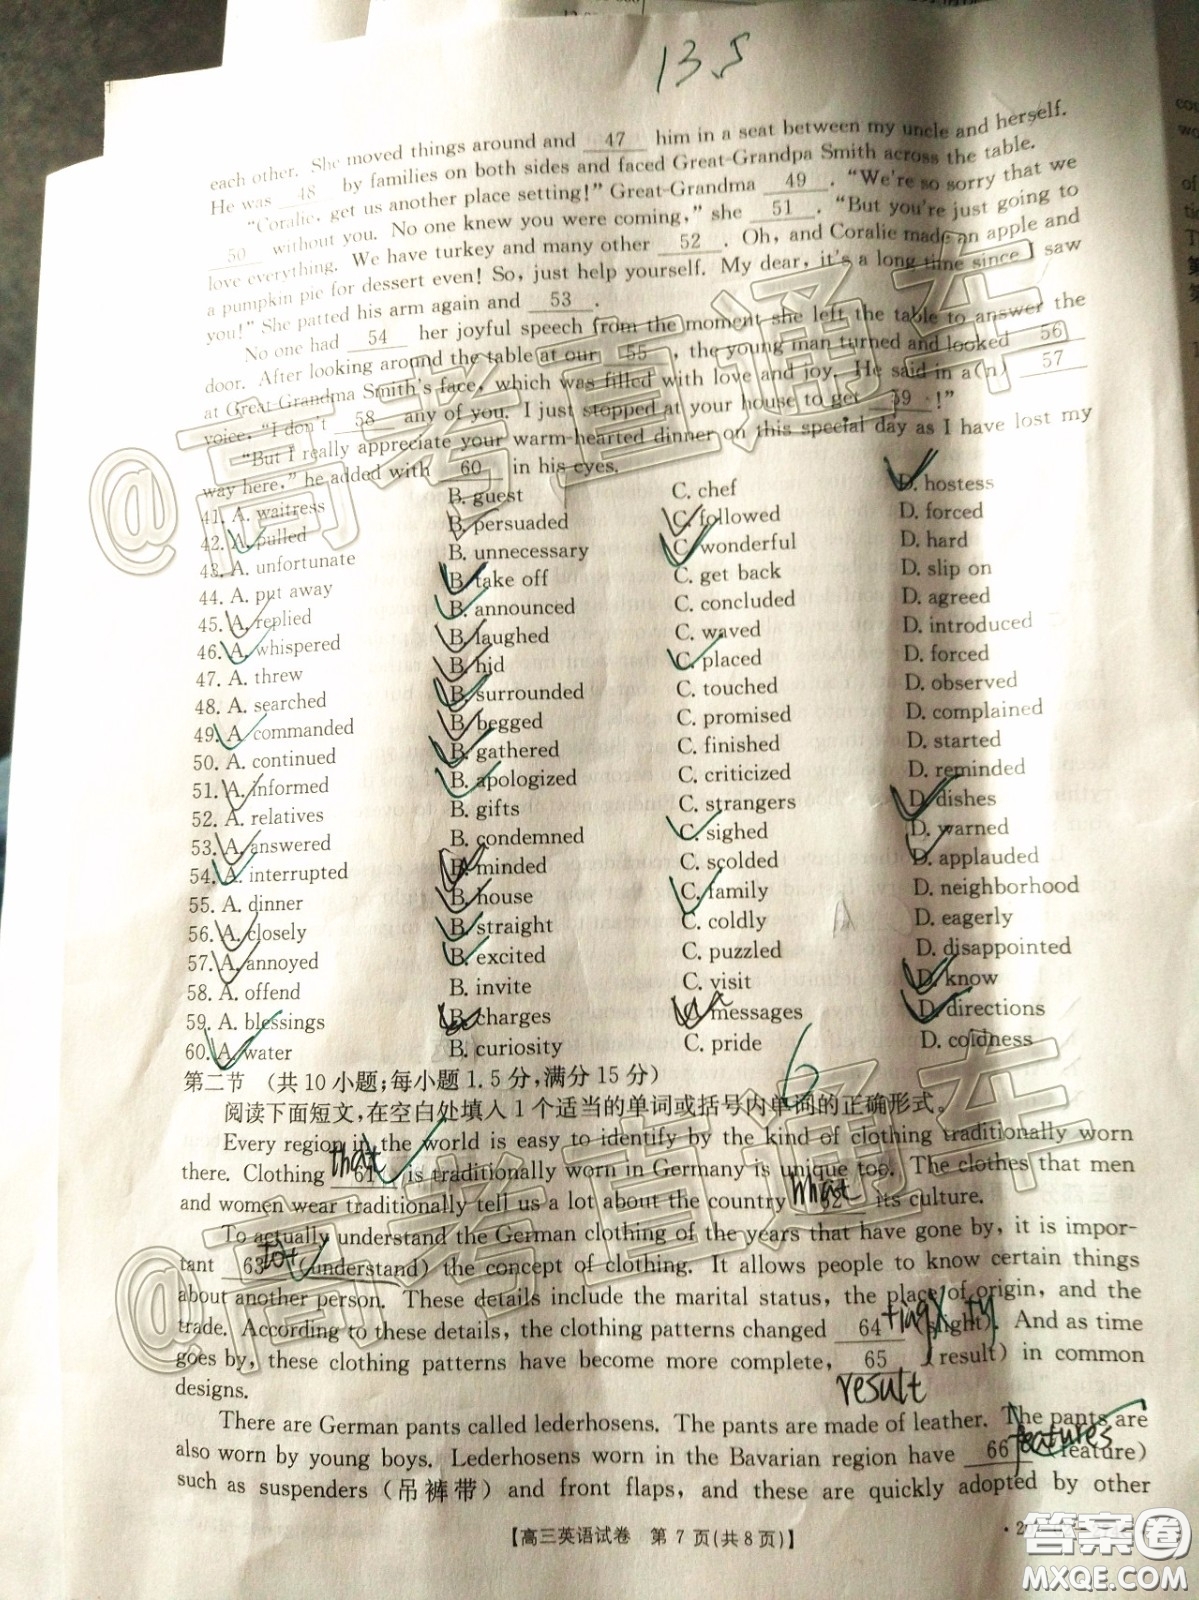 13.5
each other. She moved things around and 47 him in a seat between my uncle and herself.
He was 48 by families on both sides and faced Great-Grandpa Smith across the table.
"Coralie, get us another place setting!" Great-Grandma 49 . "We're so sorry that we
50 without you. No one knew you were coming," she 51 . "But you're just going to
love everything. We have turkey and many other 52 . Oh, and Coralie made an apple and
a pumpkin pie for dessert even! So, just help yourself. My dear, it's a long time since I saw
you!" She patted his arm again and 53 .
No one had 54 her joyful speech from the moment she left the table to answer the
door. After looking around the table at our 55 , the young man turned and looked 56
at Great-Grandma Smith's face, which was filled with love and joy. He said in a(n) 57
voice, "I don't 58 any of you. I just stopped at your house to get 59 !"
"But I really appreciate your warm-hearted dinner on this special day as I have lost my
way here," he added with 60 in his eyes.
41. A. waitress B. guest C. chef D. hostess
42. A. pulled B. persuaded C. followed D. forced
43. A. unfortunate B. unnecessary C. wonderful D. hard
44. A. put away B. take off C. get back D. slip on
45. A. replied B. announced C. concluded D. agreed
46. A. whispered B. laughed C. waved D. introduced
47. A. threw B. hid C. placed D. forced
48. A. searched B. surrounded C. touched D. observed
49. A. commanded B. begged C. promised D. complained
50. A. continued B. gathered C. finished D. started
51. A. informed B. apologized C. criticized D. reminded
52. A. relatives B. gifts C. strangers D. dishes
53. A. answered B. condemned C. sighed D. warned
54. A. interrupted B. minded C. scolded D. applauded
55. A. dinner B. house C. family D. neighborhood
56. A. closely B. straight C. coldly D. eagerly
57. A. annoyed B. excited C. puzzled D. disappointed
58. A. offend B. invite C. visit D. know
59. A. blessings B. charges C. messages D. directions
60. A. water B. curiosity C. pride D. coldness
第二节 (共10小题;每小题1.5分,满分15分) 6
阅读下面短文,在空白处填入1个适当的单词或括号内单词的正确形式。
Every region in the world is easy to identify by the kind of clothing traditionally worn
there. Clothing 61 that is traditionally worn in Germany is unique too. The clothes that men
and women wear traditionally tell us a lot about the country 62 what its culture.
To actually understand the German clothing of the years that have gone by, it is impor-
tant 63 (understand) the concept of clothing. It allows people to know certain things
about another person. These details include the marital status, the place of origin, and the
trade. According to these details, the clothing patterns changed 64 (slight). And as time
goes by, these clothing patterns have become more complete, 65 (result) in common
designs. result
There are German pants called lederhosens. The pants are made of leather. The pants are
also worn by young boys. Lederhosens worn in the Bavarian region have 66 features (feature)
such as suspenders (吊裤带) and front flaps, and these are quickly adopted by other
【高三英语试卷 第7页(共8页)】
@高考直通车
@高考直通车
答案圈
MXQE.COM